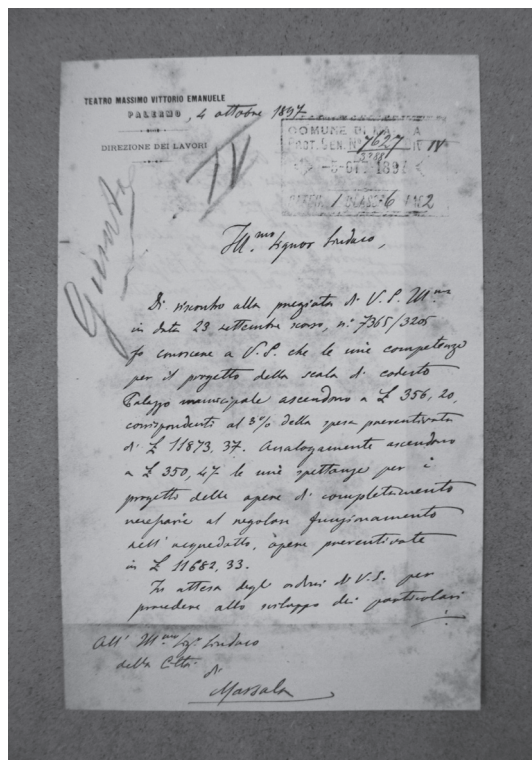 TEATRO MASSIMO VITTORIO EMANUELE
PALERMO, 4 ottobre 1897
DIREZIONE DEI LAVORI
IV
COMUNE DI MARSALA
PROT. GEN. Nº 7627 IV
-5 OTT. 1897
1 CLASSE 6 2
Giunta
Ill.mo Signor Sindaco,
Di riscontro alla pregiata di V. S. Ill.ma
in data 23 settembre scorso, n.º 7365/3205
fo conoscere a V. S. che le mie competenze
per il progetto della scala di codesto
Palazzo municipale ascendono a £ 356,20,
corrispondenti al 3% della spesa preventivata
di £ 11873,37. Analogamente ascendono
a £ 350,47 le mie spettanze per i
progetto delle opere di completamento
necessarie al regolare funzionamento
dell'acquedotto, opere preventivate
in £ 11682,33.
In attesa degli ordini di V. S. per
procedere allo sviluppo dei particolari
All' Ill.mo Sig. Sindaco
della Città
di
Marsala